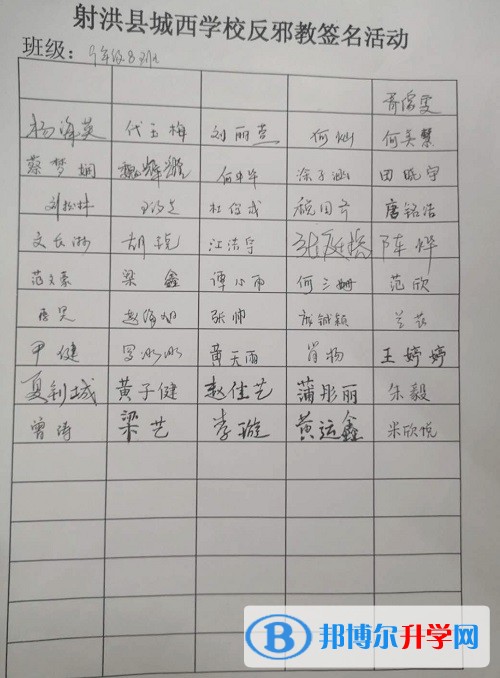 射洪县城西学校反邪教签名活动
班级：9年级8班
杨海英 代玉梅 刘丽萱 何灿 何美慧
蔡梦娴 何中华 涂子涵 田晓宇
刘松林 杜俊成 税国齐 唐铭浩
文长淋 胡锐 江浩宇 张庭榜 陈烨
范文豪 梁鑫 谭小雨 何三姗 范欣
赵海旭 张帅 庞铖颖 兰茂
尹健 罗冰冰 黄天雨 肖杨 王婷婷
夏钊城 黄子健 赵佳艺 蒲彤丽 朱毅
曾涛 梁艺 李璇 黄运鑫 米欣悦
B 邦博尔升学网